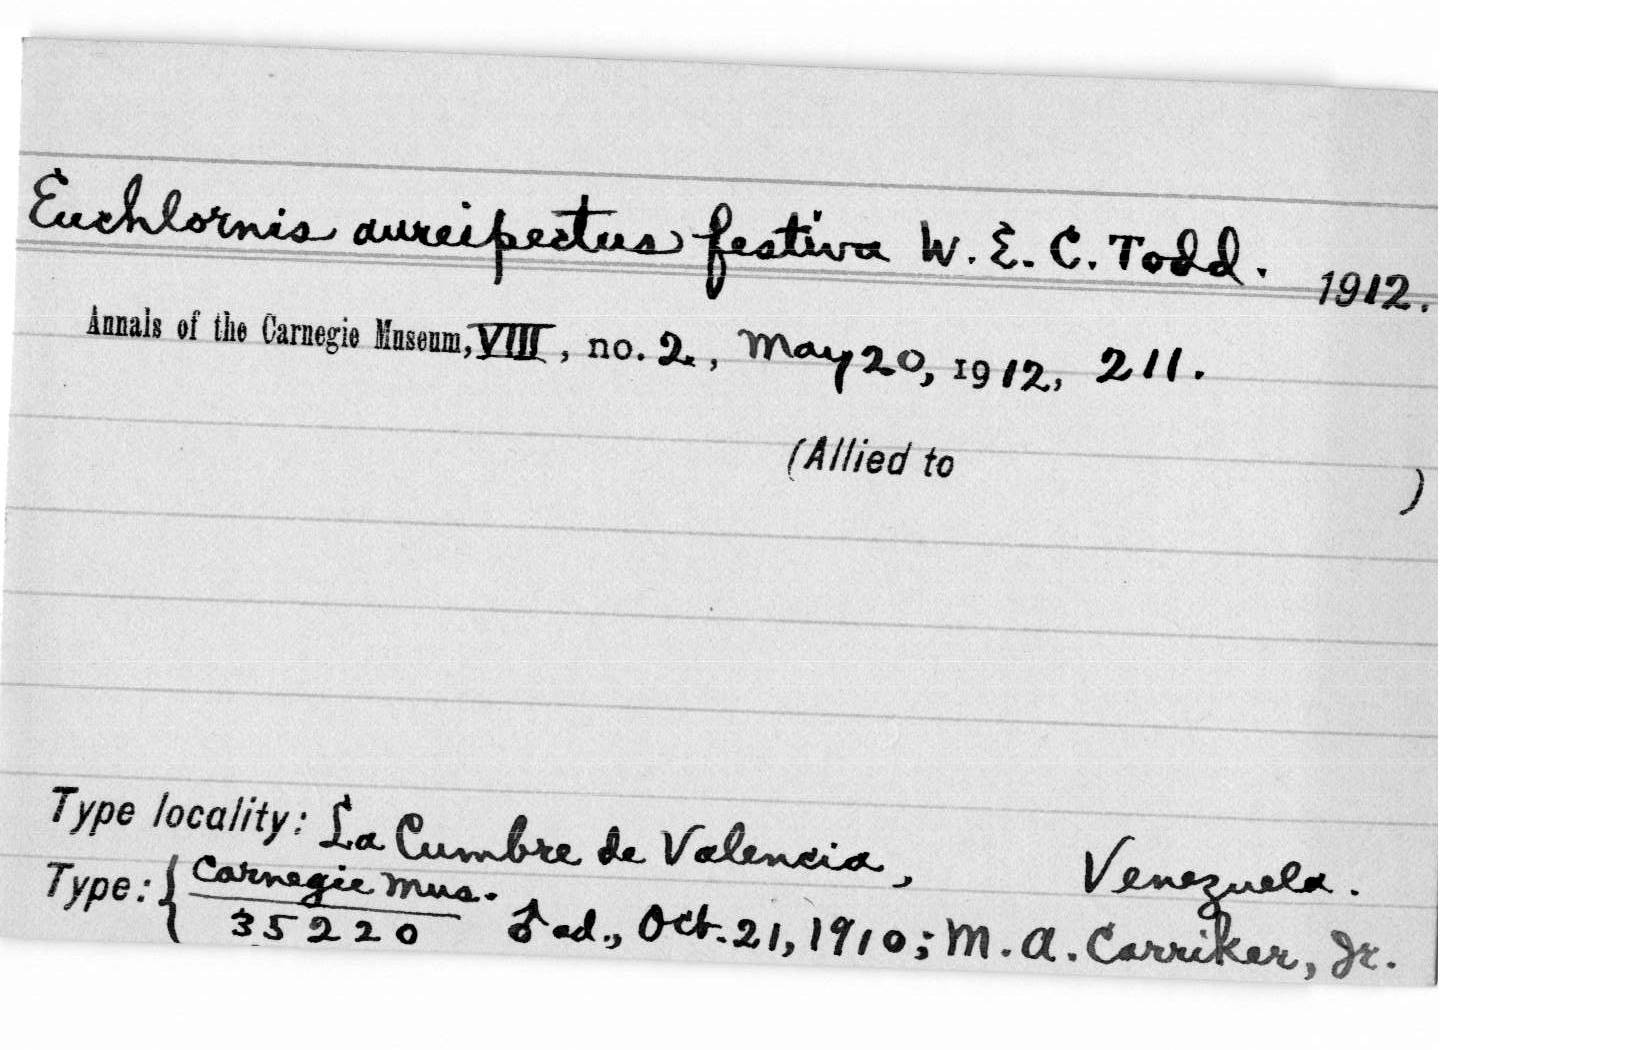 Euchlornis aureipectus festiva W. E. C. Todd. 1912.
Annals of the Carnegie Museum, VIII, no. 2, May 20, 1912, 211.
(Allied to )
Type locality: La Cumbre de Valencia, Venezuela.
Type: { Carnegie Mus.
35220 ♂ ad., Oct. 21, 1910; M. A. Carriker, Jr.